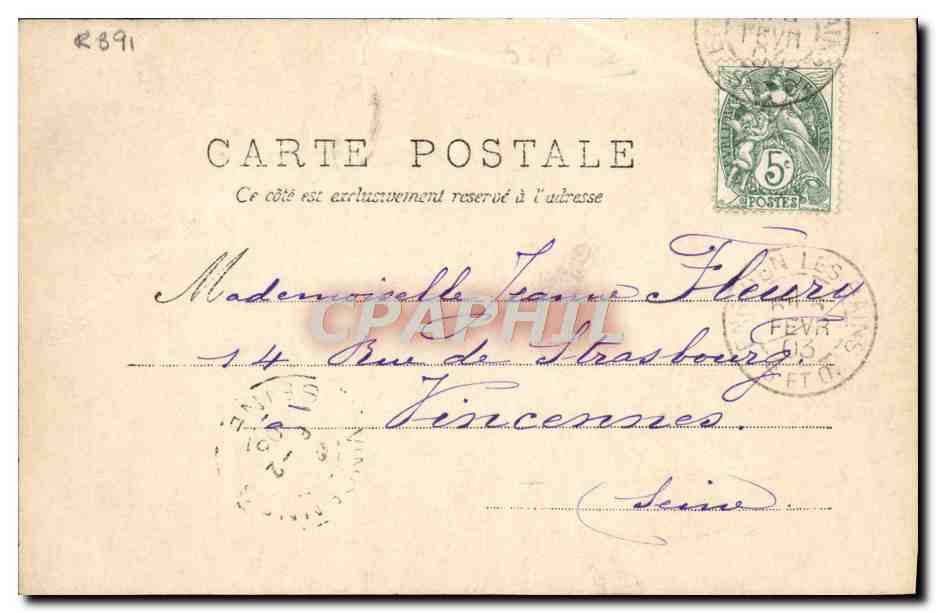 R891
CARTE POSTALE
Ce côté est exclusivement reservé à l'adresse
5c
POSTES
Mademoiselle Jeanne Fleury
14 Rue de Strasbourg.
à Vincennes.
(Seine)
CPAPHIL
LES BAINS
FEVR
03
S. ET O.